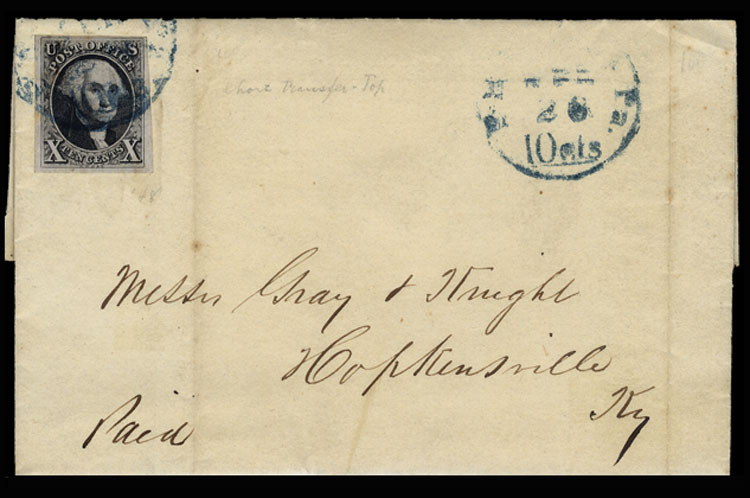 U S
POST OFFICE
X TEN CENTS X
Short Transfer-Top
48
Pa.
26
10cts
Messrs Gray & Knight
Hopkensville
Ky
Paid